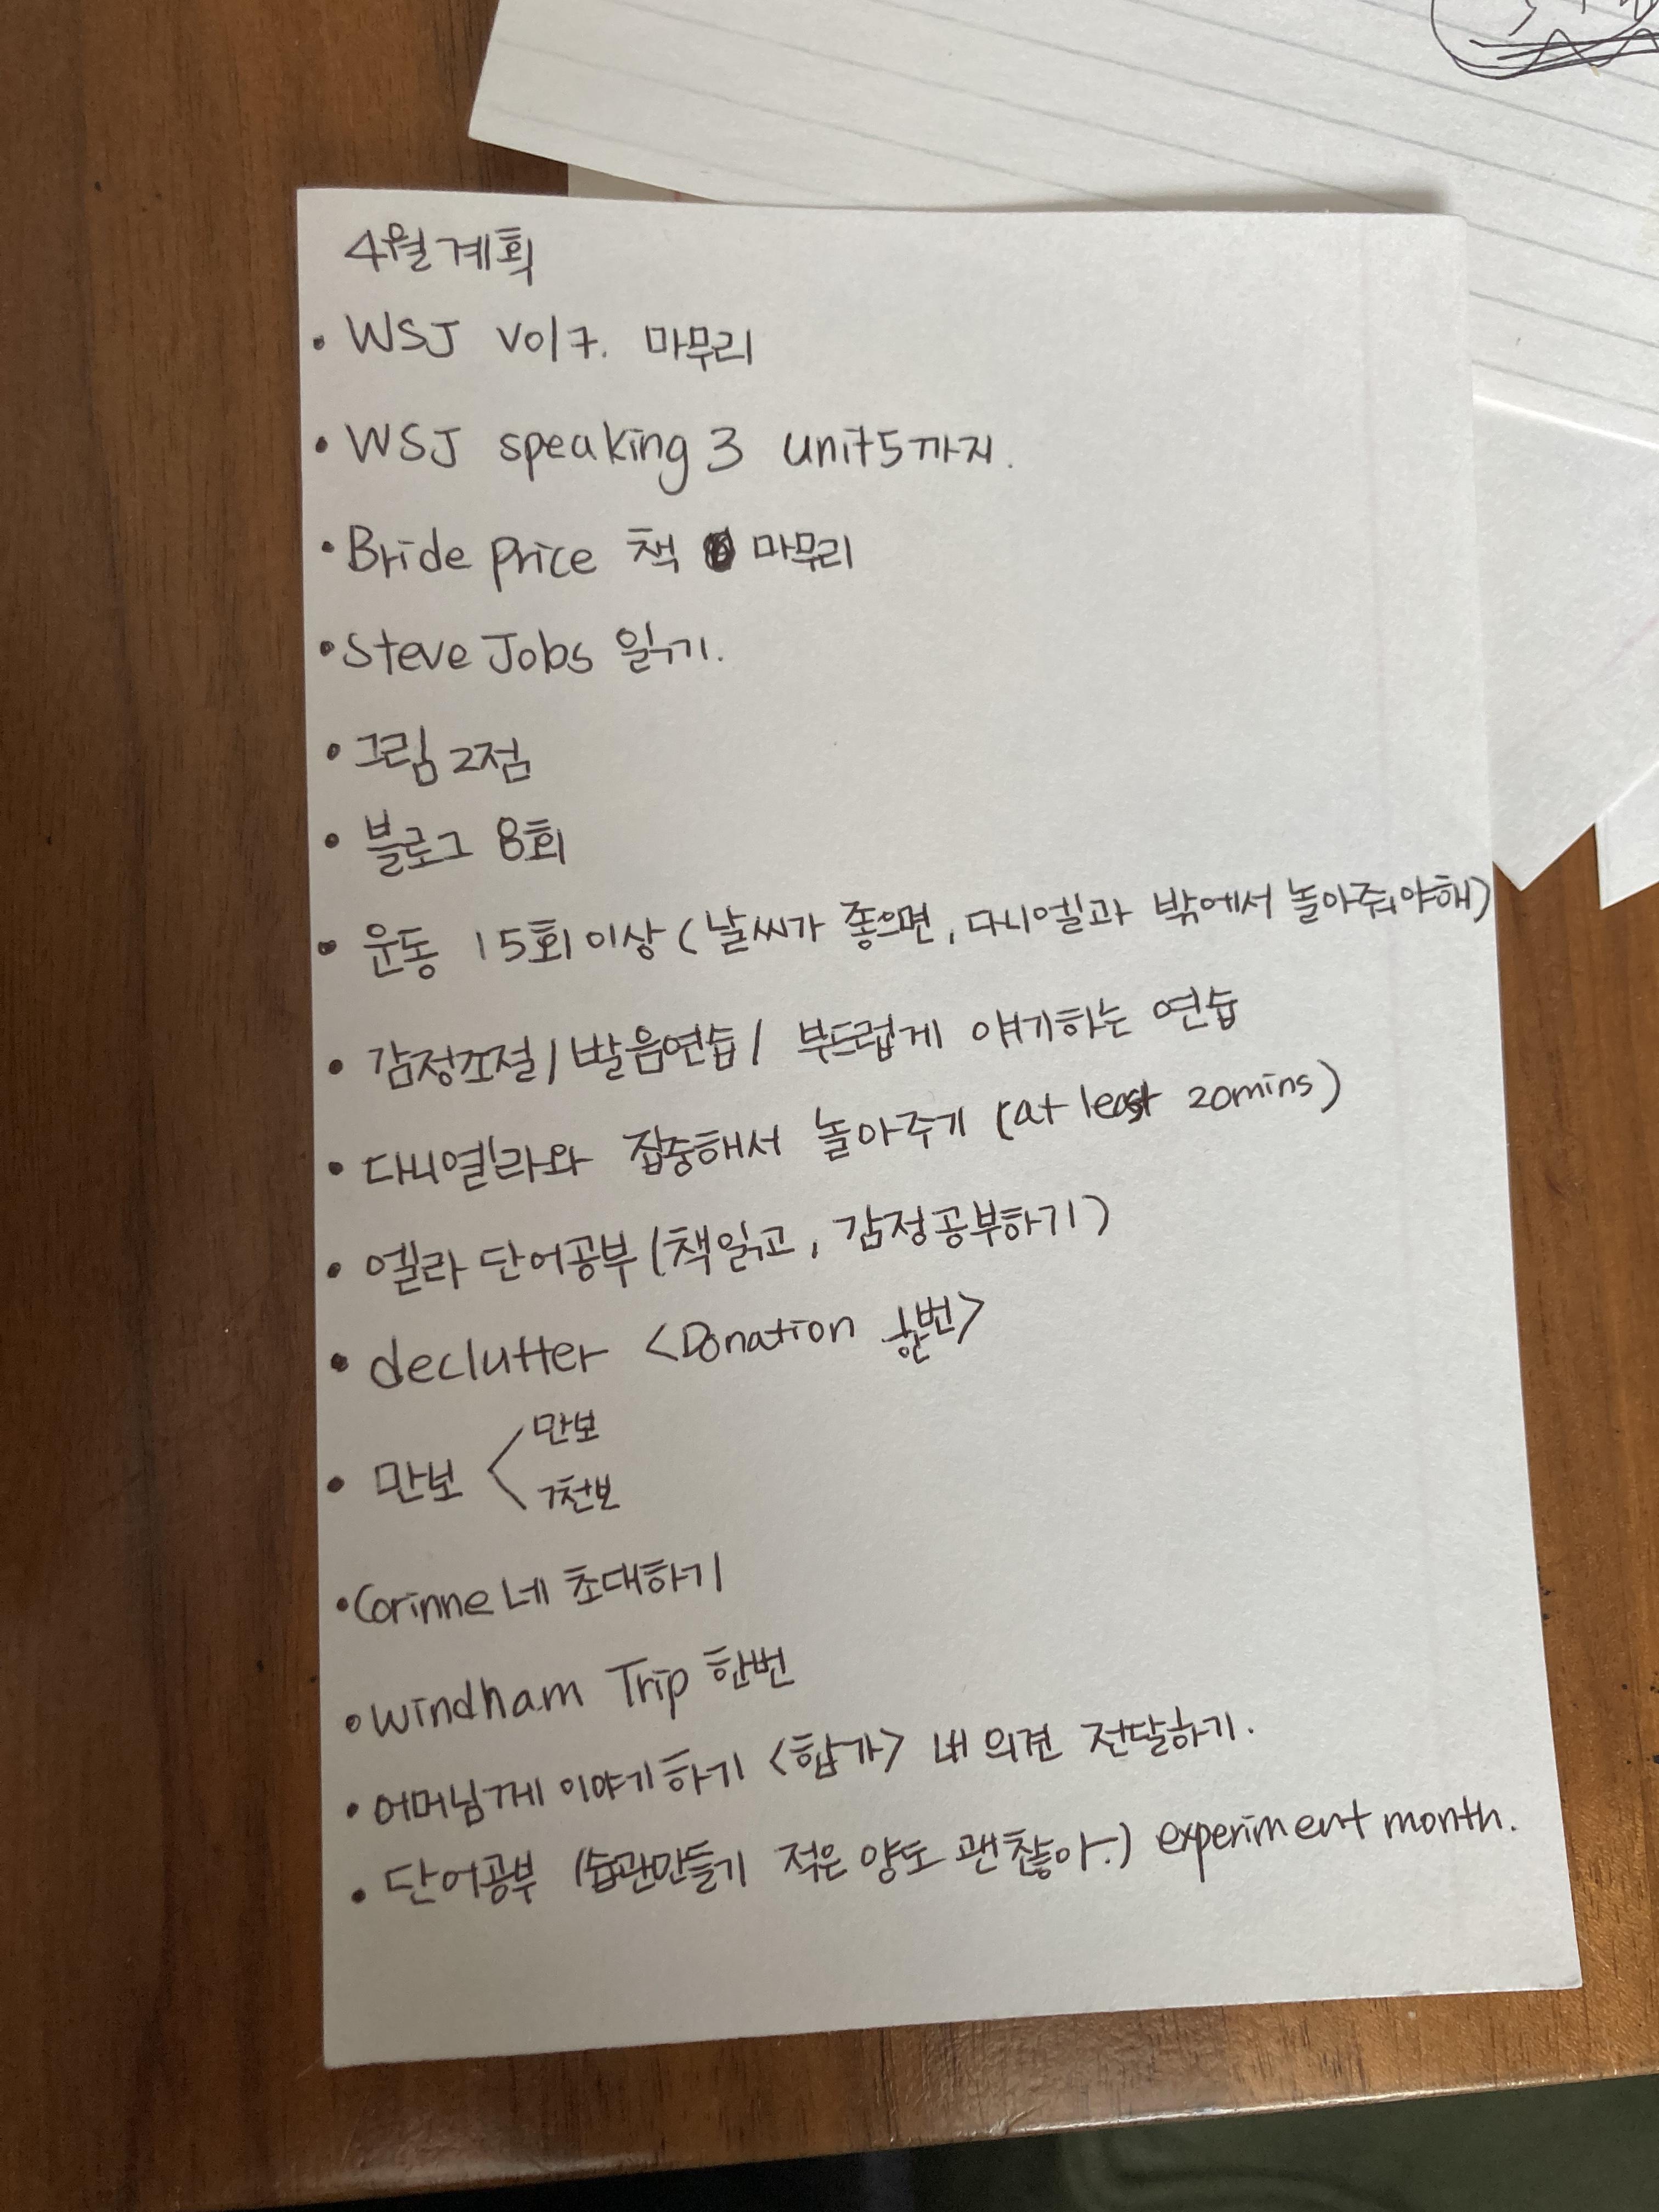 4월 계획
• WSJ Vol 7. 마무리
• WSJ speaking 3 unit 5 까지.
• Bride price 책 마무리
• Steve Jobs 읽기.
• 그림 2점
• 블로그 8회
• 운동 15회 이상 (날씨가 좋으면, 다니엘과 밖에서 놀아줘야해)
• 감정조절/발음연습/ 부드럽게 얘기하는 연습
• 다니엘라와 집중해서 놀아주기 (at least 20mins)
• 엘라 단어공부 (책읽고, 감정공부하기)
• declutter <Donation 한번>
만보
• 만보 <
7천보
• Corinne네 초대하기
• Windham Trip 한번
• 어머님께 이야기하기 <합가> 내 의견 전달하기.
• 단어공부 (습관만들기 적은 양도 괜찮아.) experiment month.